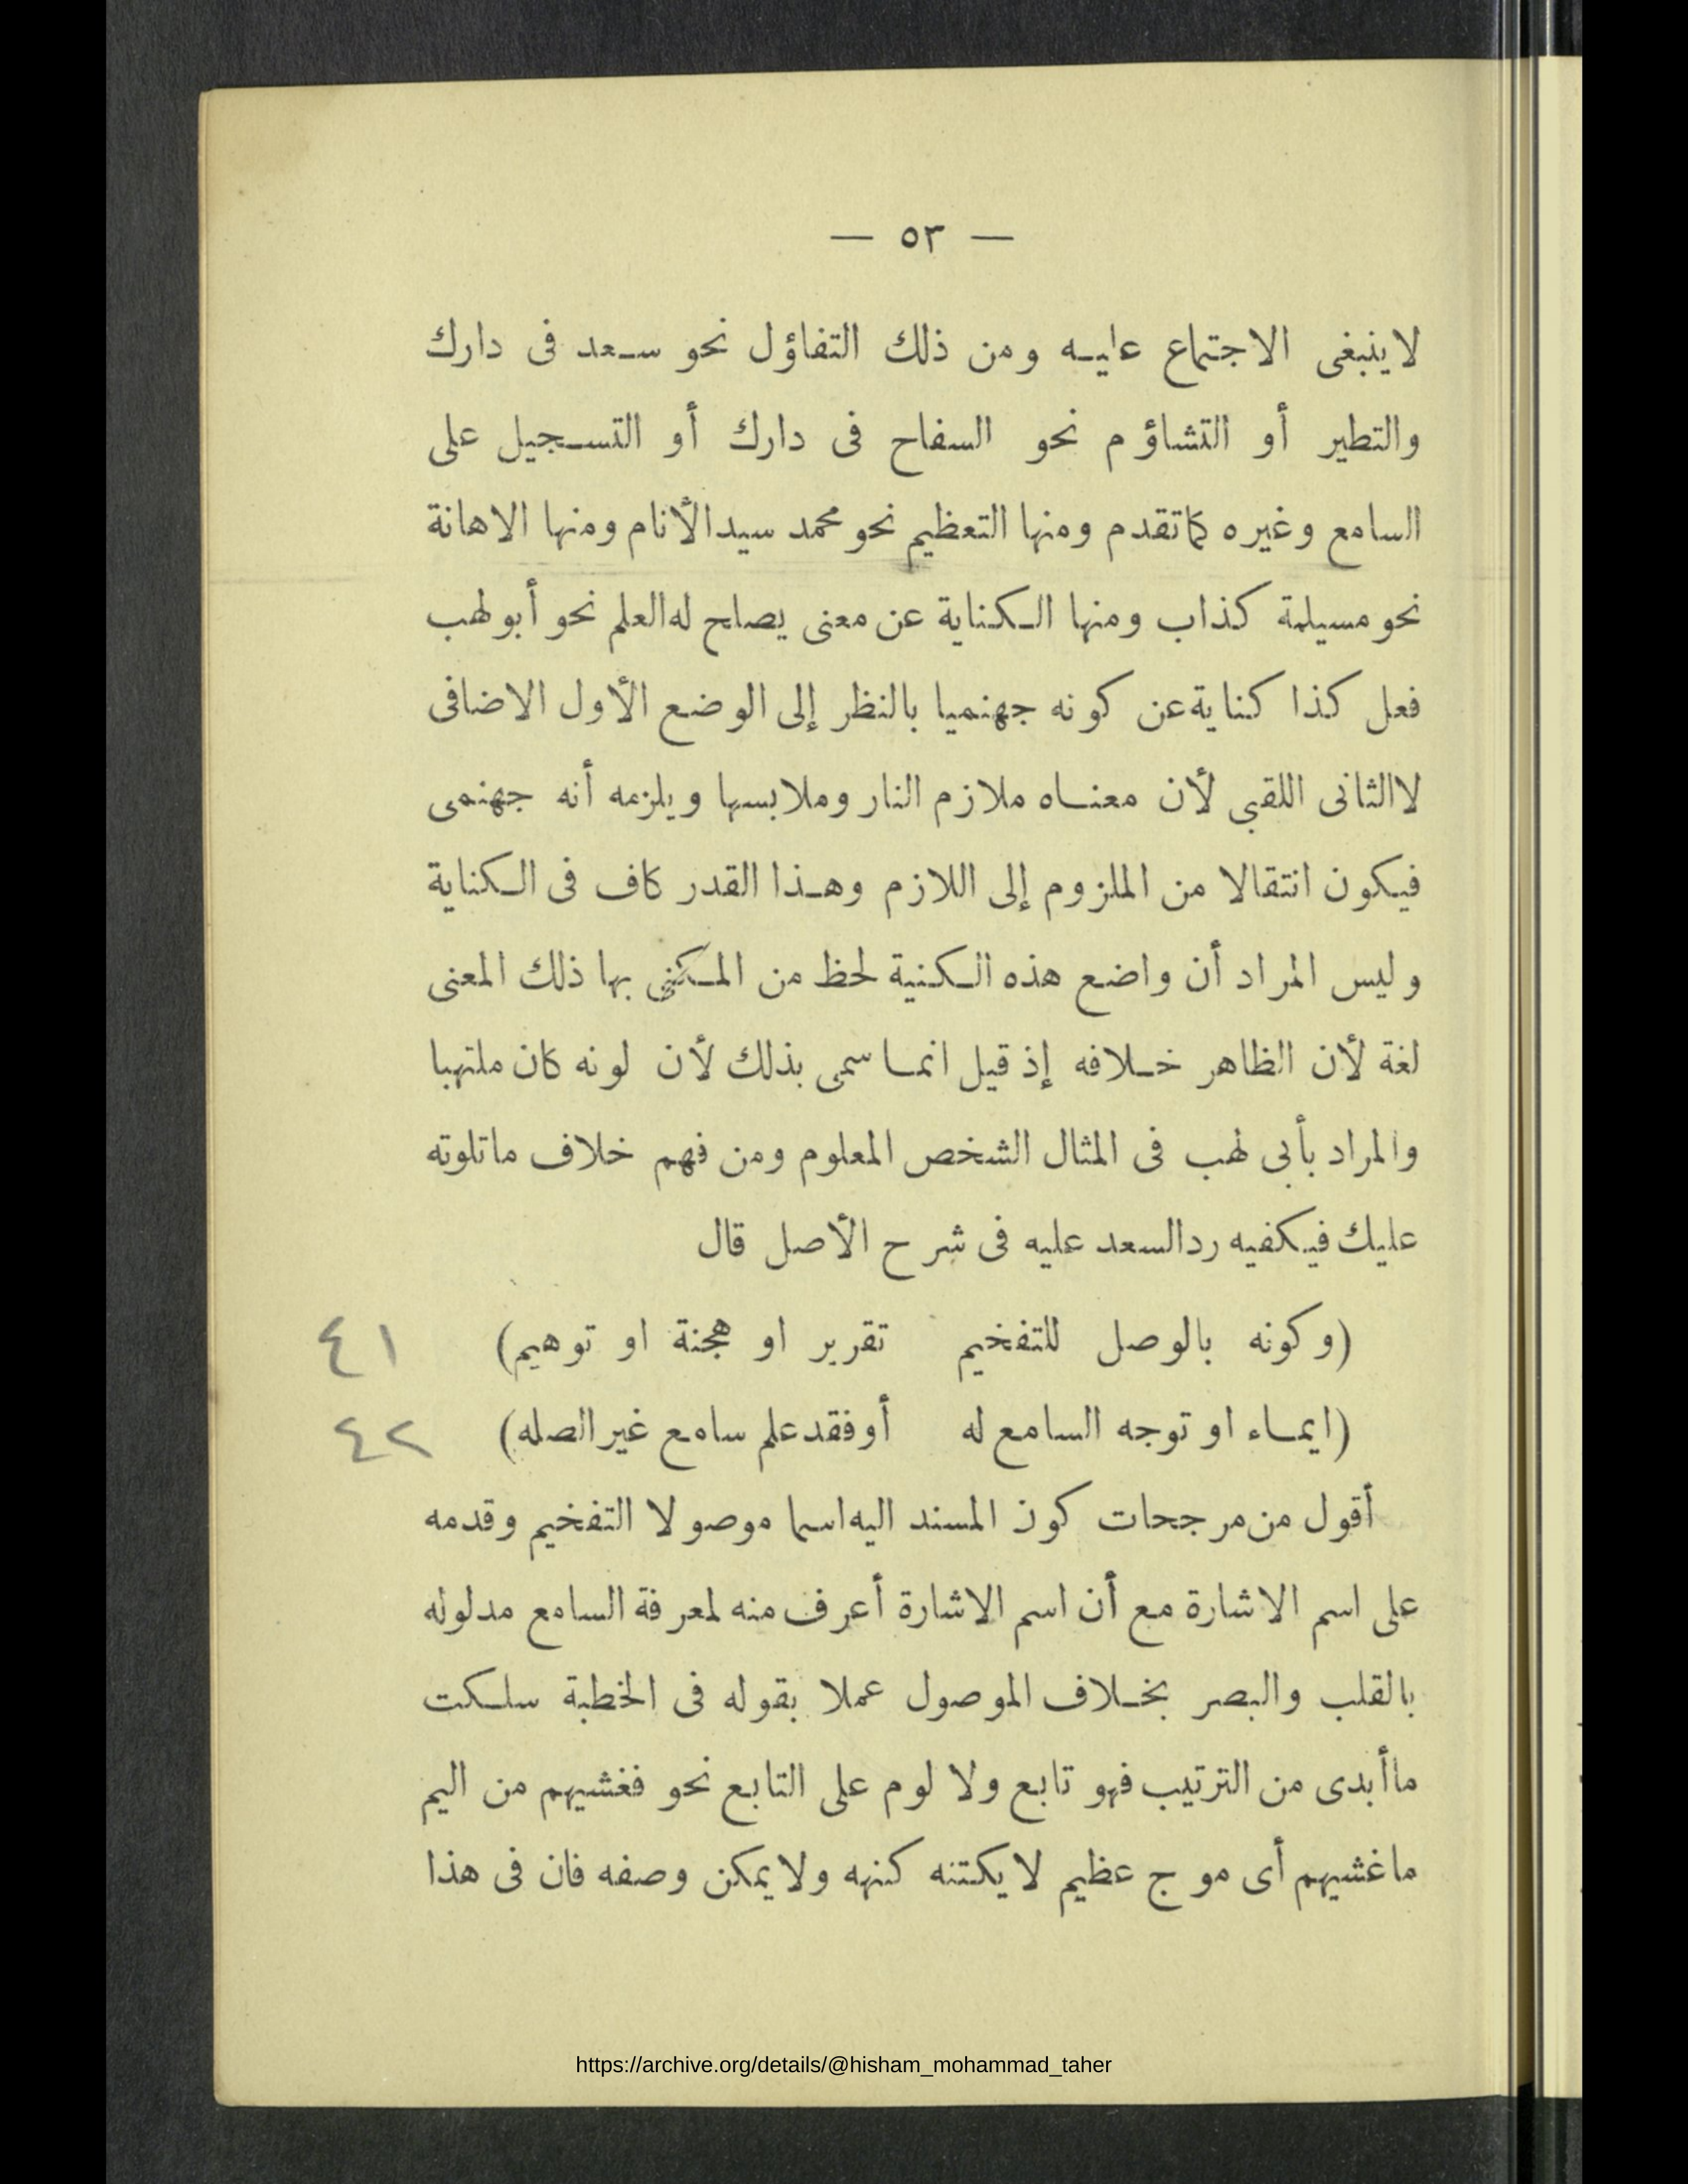 — ٥٣ —
لا ينبغى الاجتماع عليه ومن ذلك التفاؤل نحو سعد فى دارك
والتطير أو التشاؤم نحو السفاح فى دارك أو التسجيل على
السامع وغيره كما تقدم ومنها التعظيم نحو محمد سيد الأنام ومنها الاهانة
نحو مسيلمة كذاب ومنها الكناية عن معنى يصلح له العلم نحو أبو لهب
فعل كذا كناية عن كونه جهنميا بالنظر إلى الوضع الأول الاضافى
لا الثانى اللقبى لأن معناه ملازم النار وملابسها ويلزمه أنه جهنمى
فيكون انتقالا من الملزوم إلى اللازم وهذا القدر كاف فى الكناية
وليس المراد أن واضع هذه الكنية لحظ من المكنى بها ذلك المعنى
لغة لأن الظاهر خلافه إذ قيل انما سمى بذلك لأن لونه كان ملتهبا
والمراد بأبى لهب فى المثال الشخص المعلوم ومن فهم خلاف ماتلوته
عليك فيكفيه رد السعد عليه فى شرح الأصل قال
(وكونه بالوصل للتفخيم تقرير او هجنة او توهيم) ٤١
(ايماء او توجه السامع له أو فقد علم سامع غير الصله) ٤٢
أقول من مرجحات كون المسند اليه اسما موصولا التفخيم وقدمه
على اسم الاشارة مع أن اسم الاشارة أعرف منه لمعرفة السامع مدلوله
بالقلب والبصر بخلاف الموصول عملا بقوله فى الخطبة سلكت
ما أبدى من الترتيب فهو تابع ولا لوم على التابع نحو فغشيهم من اليم
ما غشيهم أى موج عظيم لا يكتنه كنهه ولا يمكن وصفه فان فى هذا
https://archive.org/details/@hisham_mohammad_taher